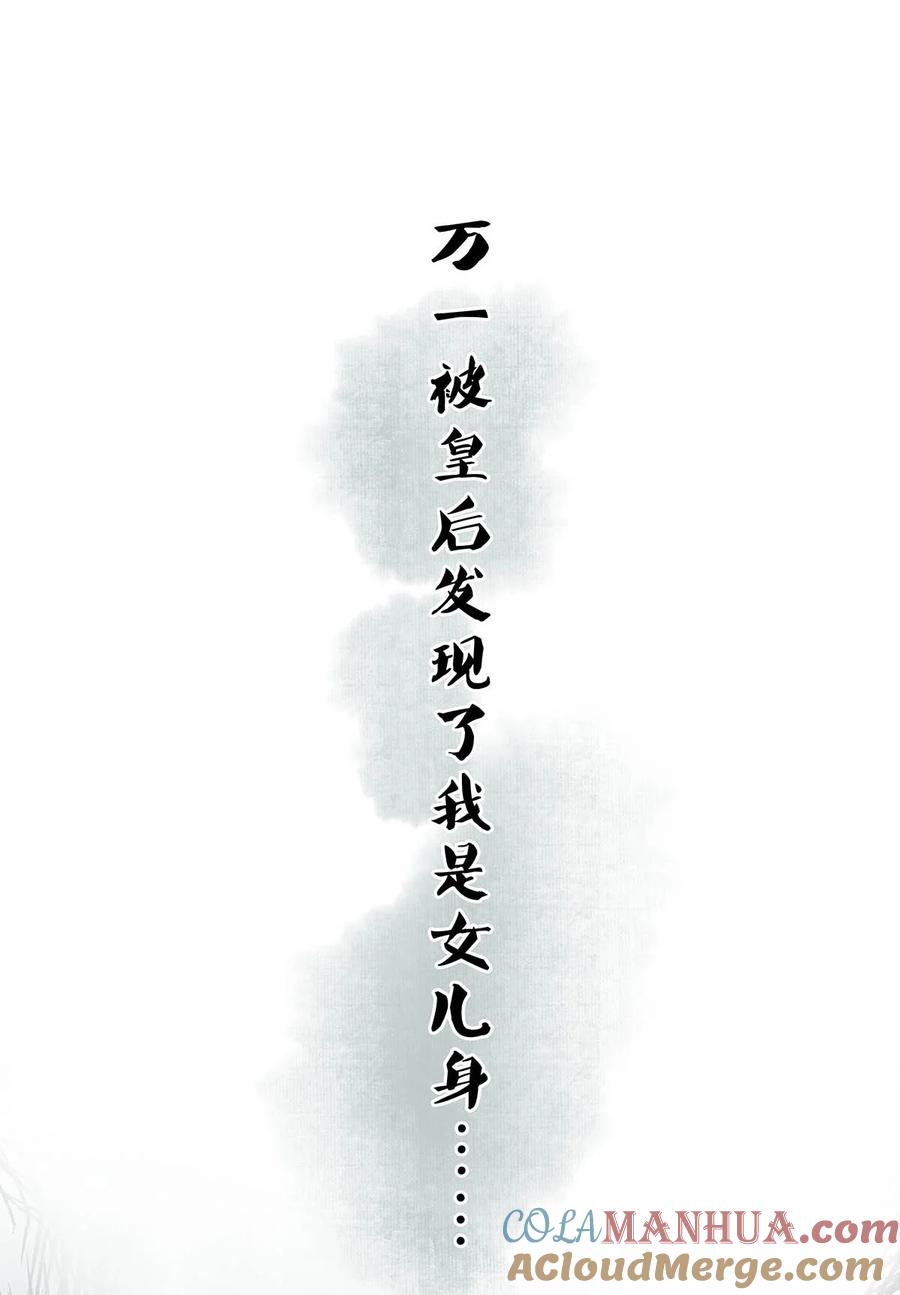 万一被皇后发现了我是女儿身……
COLAMANHUA.com
ACloudMerge.com